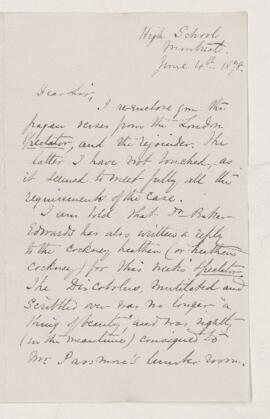 High School
Montreal.
June 4th 1878.
Dear Sir,
I re-enclose you the
pagan verses from the London
Spectator, and the rejoinder. The
latter I have not touched, as
it seemed to meet fully all the
requirements of the case.
I am told that Dr Baker
Edwards has also written a reply
to the Cockney heathen (or heathen
Cockney) for this week's Spectator.
The Discobolus, mutilated and
scribbled over was no longer "a
thing of beauty", and was rightly
(in the meantime) consigned to
Mr Passmore's lumber room.